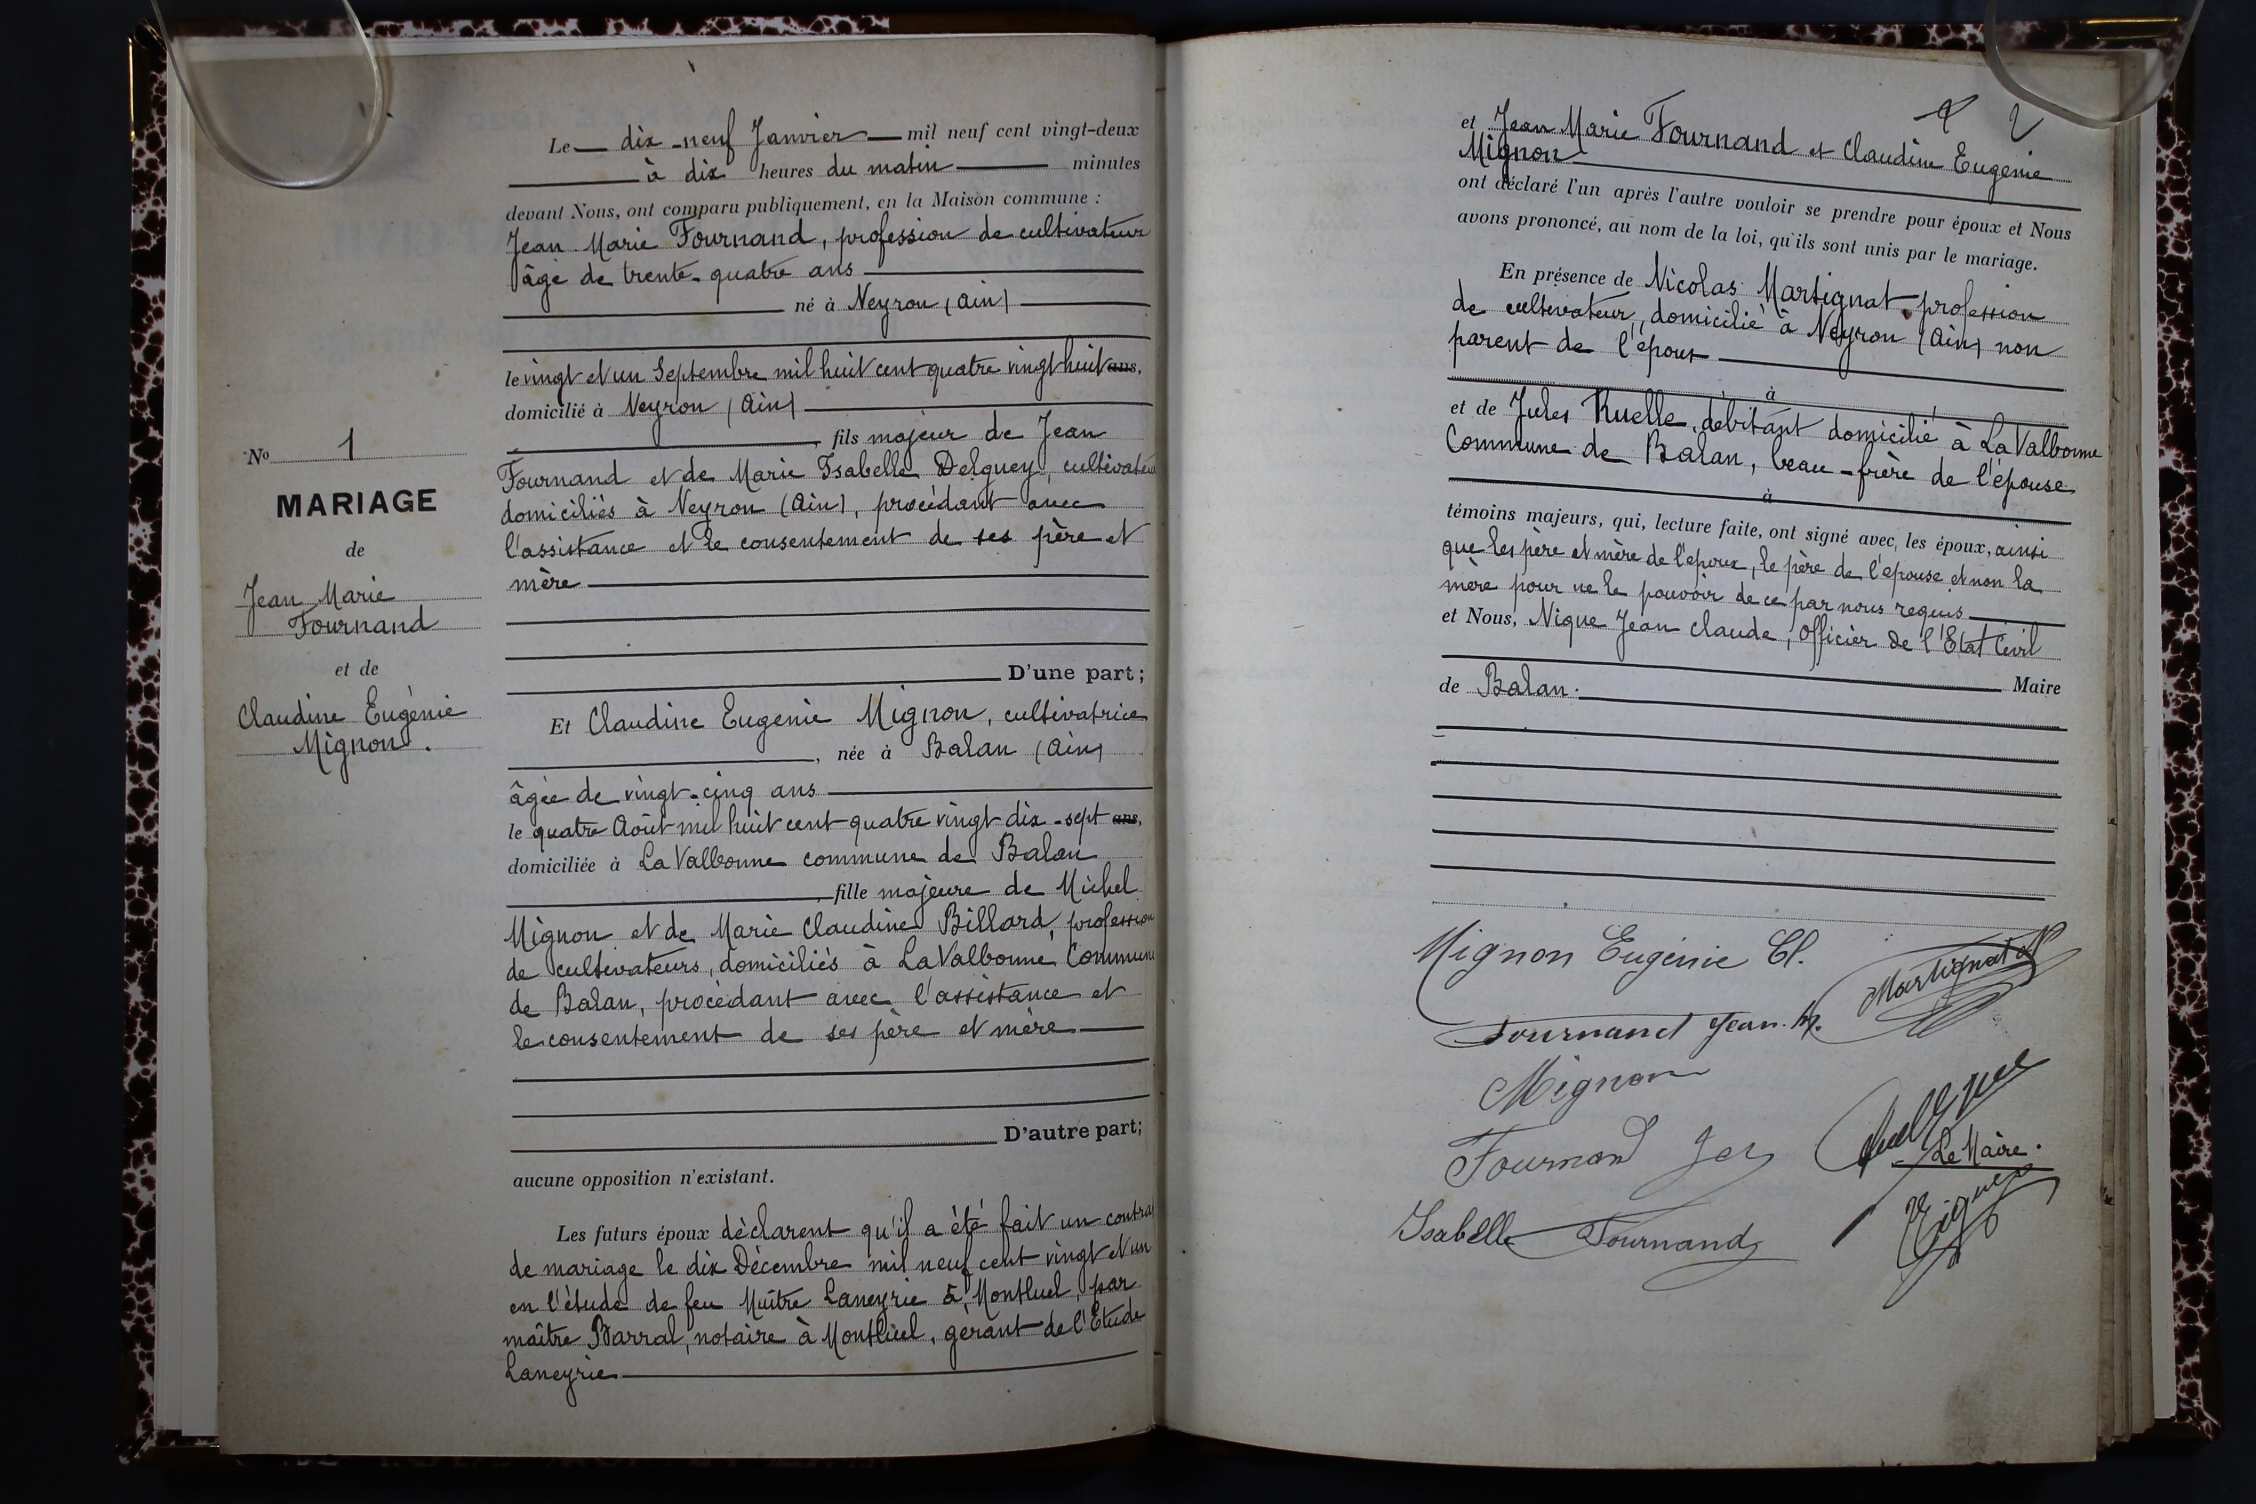 Le dix-neuf Janvier mil neuf cent vingt-deux
à dix heures du matin minutes
devant Nous, ont comparu publiquement, en la Maison commune :
Jean Marie Fournand, profession de cultivateur
âgé de trente-quatre ans
né à Neyron (Ain)
le vingt et un Septembre mil huit cent quatre vingt huit ans,
domicilié à Neyron (Ain)
fils majeur de Jean
Fournand et de Marie Isabelle Delguey, cultivateurs
domiciliés à Neyron (Ain), procédant avec
l'assistance et le consentement de ses père et
mère
D'une part;
No 1
MARIAGE
de
Jean Marie
Fournand
et de
Claudine Eugénie
Mignon.
Et Claudine Eugenie Mignon, cultivatrice
, née à Balan (Ain)
âgée de vingt-cinq ans
le quatre Août mil huit cent quatre vingt dix-sept ans,
domiciliée à La Valbonne commune de Balan
, fille majeure de Michel
Mignon et de Marie Claudine Billard, profession
de cultivateurs, domiciliés à La Valbonne Commune
de Balan, procédant avec l'assistance et
le consentement de ses père et mère
D'autre part;
aucune opposition n'existant.
Les futurs époux déclarent qu'il a été fait un contrat
de mariage le dix Décembre mil neuf cent vingt et un
en l'étude de feu Maître Laneyrie à Montluel, par
maître Barral, notaire à Montluel, gerant de l'Etude
Laneyrie
2
et Jean Marie Fournand et Claudine Eugenie
Mignon
ont déclaré l'un après l'autre vouloir se prendre pour époux et Nous
avons prononcé, au nom de la loi, qu'ils sont unis par le mariage.
En présence de Nicolas Martignat, profession
de cultivateur, domicilié à Neyron (Ain) non
parent de l'époux
à
et de Jules Ruelle, débitant domicilié à La Valbonne
Commune de Balan, beau-frère de l'épouse
à
témoins majeurs, qui, lecture faite, ont signé avec les époux, ainsi
que les père et mère de l'époux, le père de l'épouse et non la
mère pour ne le pouvoir de ce par nous requis
et Nous, Nique Jean Claude, Officier de l'Etat Civil
Maire
de Balan.
Mignon Eugénie Cl.
Martignat N
Fournand Jean. M.
Mignon
Fournand Jen
Le Maire.
Nique
Isabelle Fournand